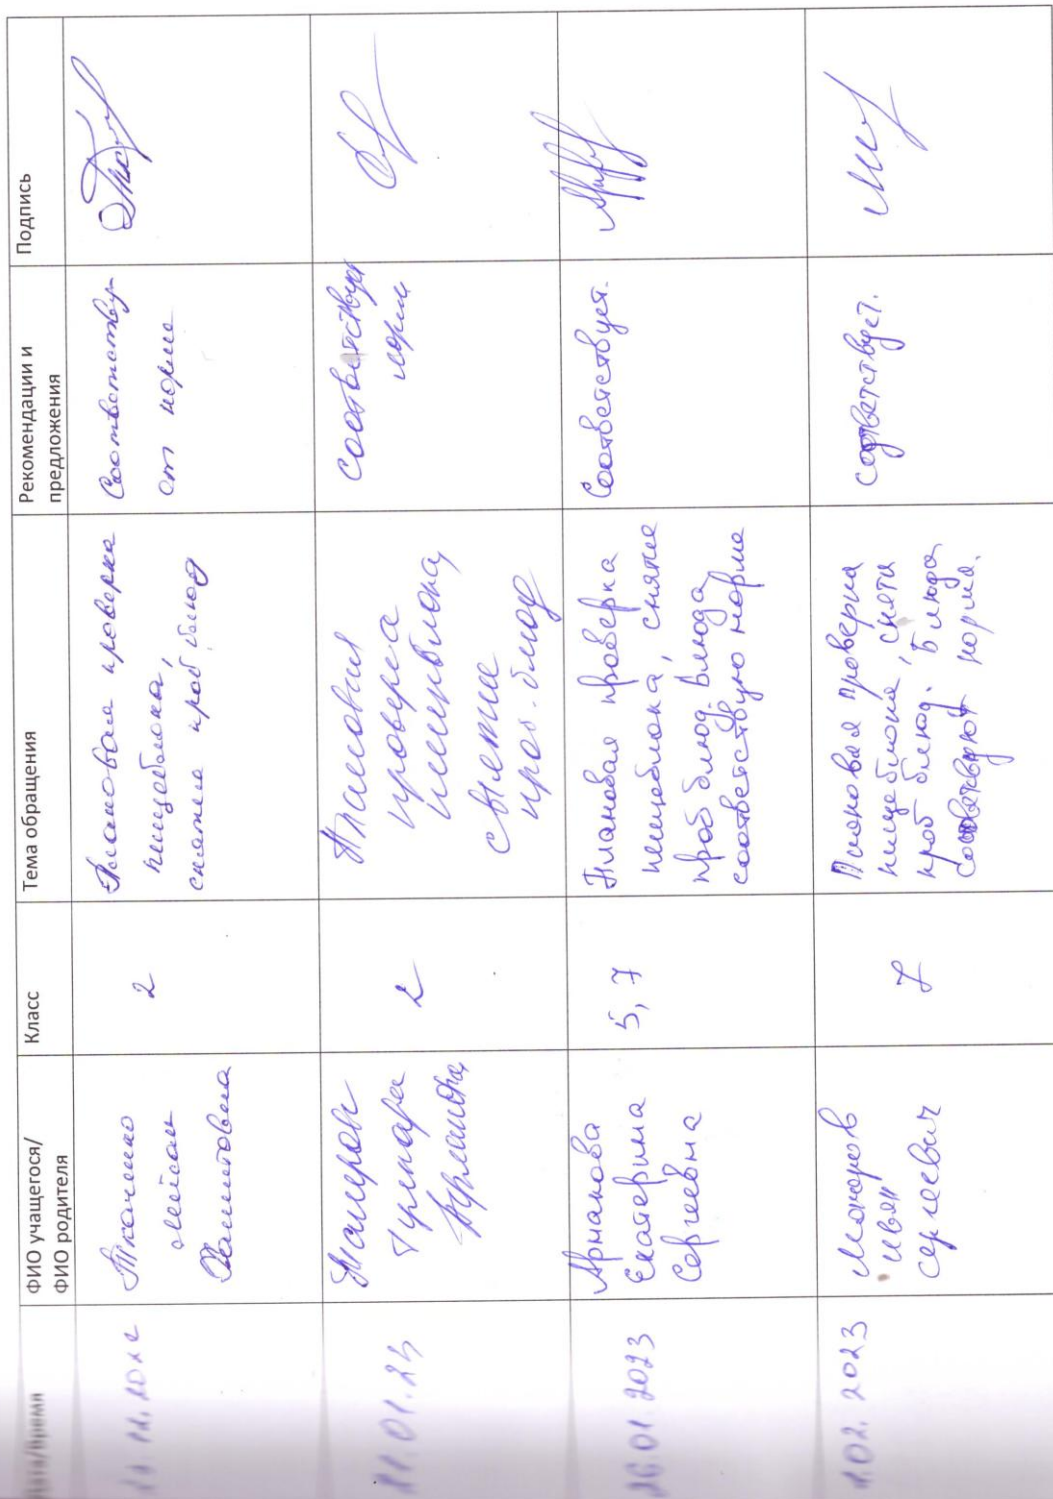 Дата/Время
ФИО учащегося/
ФИО родителя
Класс
Тема обращения
Рекомендации и
предложения
Подпись
Ткаченко
2
Плановая проверка
пищеблока,
снятие проб блюд
Соответству-
ет норме
11.01.23
Гулнара
2
проверка
пищеблока
снятие
проб. блюд
соответствует
норме
26.01.2023
Арманова
Екатерина
Сергеевна
5, 7
Плановая проверка
пищеблока, снятие
проб блюд. Блюда
соответствую норме
Соответствует.
1.02. 2023
Иван
Сергеевич
7
Плановая проверка
пищеблока, снята
проб блюд. Блюда
соответствуют норма.
соответствует.